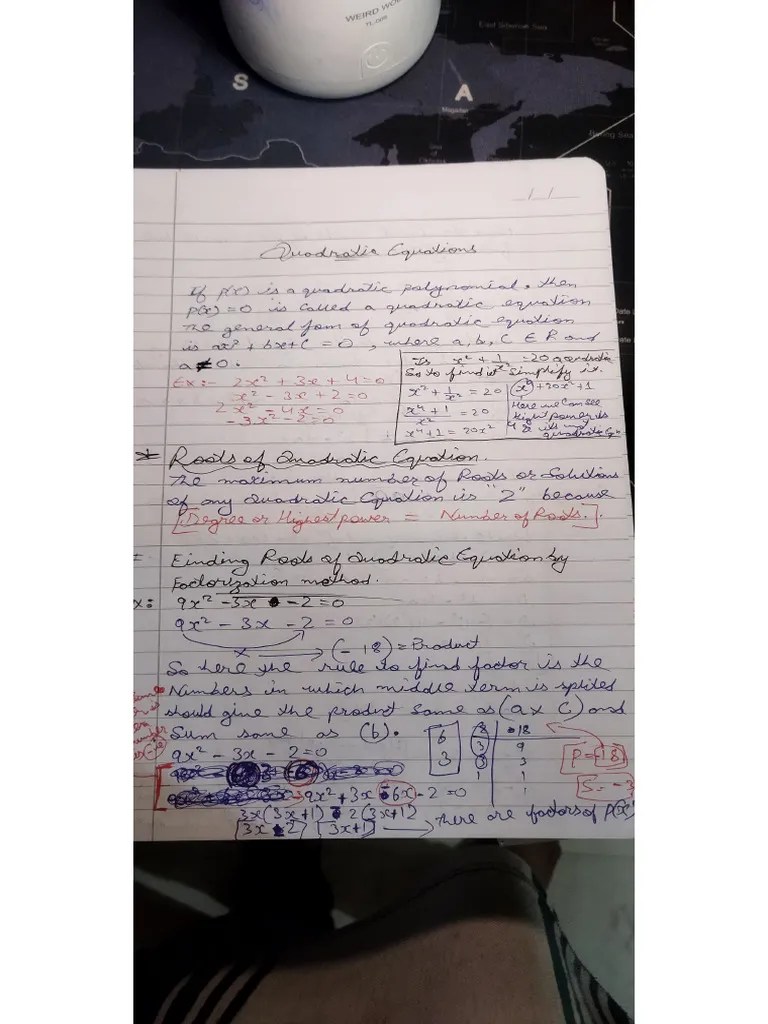 WEIRD WO
S
A
East Siberian Sea
Magadan
Bering Sea
Sea of Okhotsk
Quadratic Equations
If p(x) is a quadratic polynomial, then
p(x) = 0 is called a quadratic equation
The general fom of quadratic equation
is ax² + bx + c = 0, where a, b, c ∈ R and
a ≠ 0.
Ex:- 2x² + 3x + 4 = 0
x² - 3x + 2 = 0
2x² - 4x = 0
-3x² - 2 = 0
Is x² + 1/x² = 20 a quadratic
So to find it simplify it.
x² + 1/x² = 20
x⁴ + 1/x² = 20
x⁴ + 1 = 20x²
x⁴ + 20x² + 1
Here we can see
Highest power is
4 & its not
quadratic Eqn
* Roots of Quadratic Equation.
The maximum number of Roots or Solutions
of any Quadratic Equation is "2" because
Degree or Highest power = Number of Roots.
Finding Roots of Quadratic Equation by
Factorization method.
x: 9x² - 3x - 2 = 0
9x² - 3x - 2 = 0
x → (-18) = Product
So here the rule to find factor is the
Numbers in which middle term is splited
should give the product same as (a x c) and
Sum same as (b).
6
3
18
9
3
1
P = -18
S = -3
9x² - 3x - 2 = 0
9x² + 3x - 6x - 2 = 0
3x(3x+1) - 2(3x+1)
3x - 2 3x+1 → there are factors of p(x)